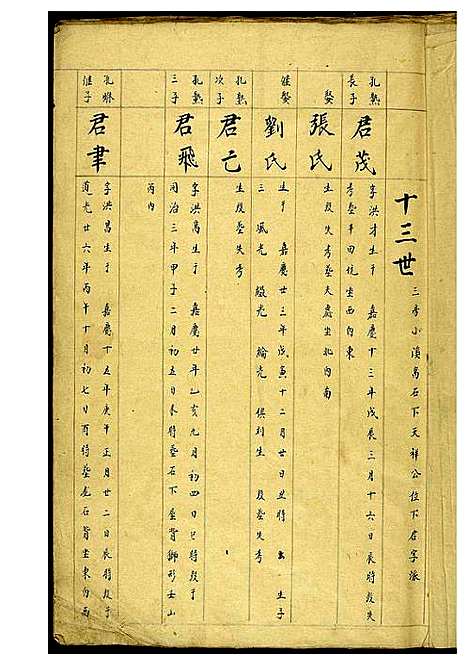 十三世
三房小溪高石下天祥公位下君字派
孔熟
長子
君茂
字洪才生于 嘉慶十三年戊辰三月十六日辰時殁失
考塟平田坑坐西向東
娶
張氏
生殁失考塟天處坐北向南
継娶
劉氏
生于 嘉慶廿三年戊寅十二月廿日丑時 生子
三 風光 緞光 綸光 俱利生 殁塟失考
孔熟
次子
君亡
生殁塟失考
孔熟
三子
君飛
字洪高生于 嘉慶廿年乙亥九月初四日巳時殁于
同治三年甲子二月初五日未時塟石下屋背獅形土山
丙向
孔
継子
君聿
字洪昌生于 嘉慶十五年庚午正月廿二日辰時殁于
道光廿六年丙午十月初七日酉時塟龙石背坐東向西